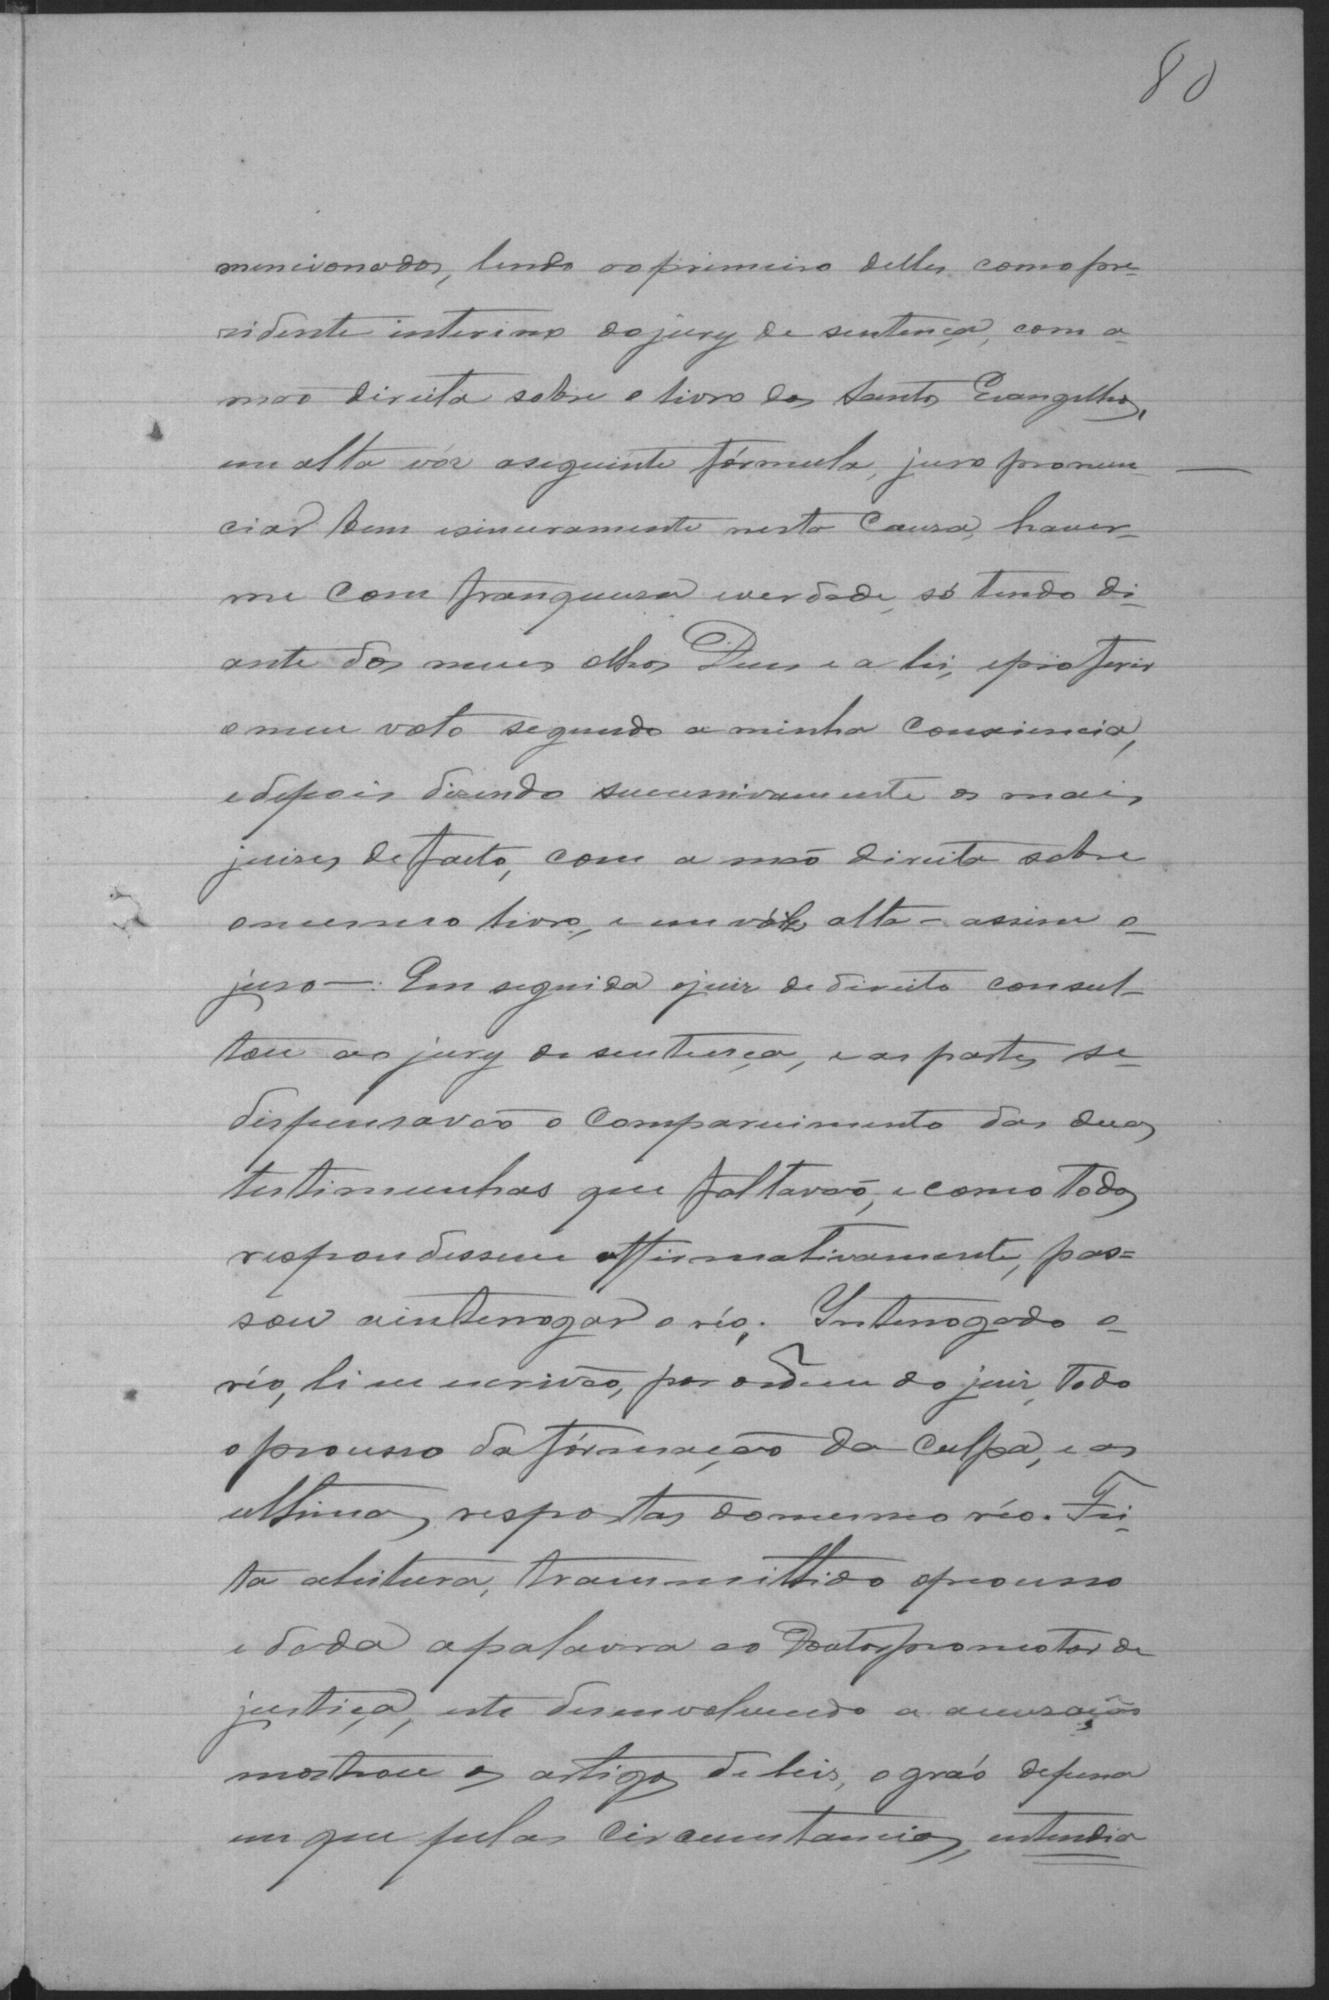 80
mencionados, lendo o primeiro delles como pre-
zidente interino do jury de sentença, com a
mão direita sobre o livro dos Santos Evangelhos,
em alta vóz a seguinte fórmula, juro pronun-
ciar bem e sinceramente nesta Causa, haver-
me com franqueza e verdade, só tendo di-
ante dos meus olhos Deus e a lei, e proferir
o meu voto segundo a minha consciencia,
e depois dizendo successivamente os mais
juizes de facto, com a mão direita sobre
o mesmo livro, e em vóz alta - assim o
juro -: Em seguida o juiz de direito consul-
tou ao jury de sentença, e as partes se
dispensavão o comparecimento das duas
testimunhas que faltavão, e como todos
respondessem affirmativamente, pas=
sou a interrogar o réo. Interrogado o
réo, li eu escrivão, por ordem do juiz, todo
o processo da fórmação da culpa, e as
ultimas respostas do mesmo réo. Fei-
ta a leitura, transmittido o processo
e dada a palavra ao Doutor promotor de
justiça, este desenvolvendo a accuzação
mostrou os artigos de leis, o gráo de pena
em que pelas circumstancias, entendia